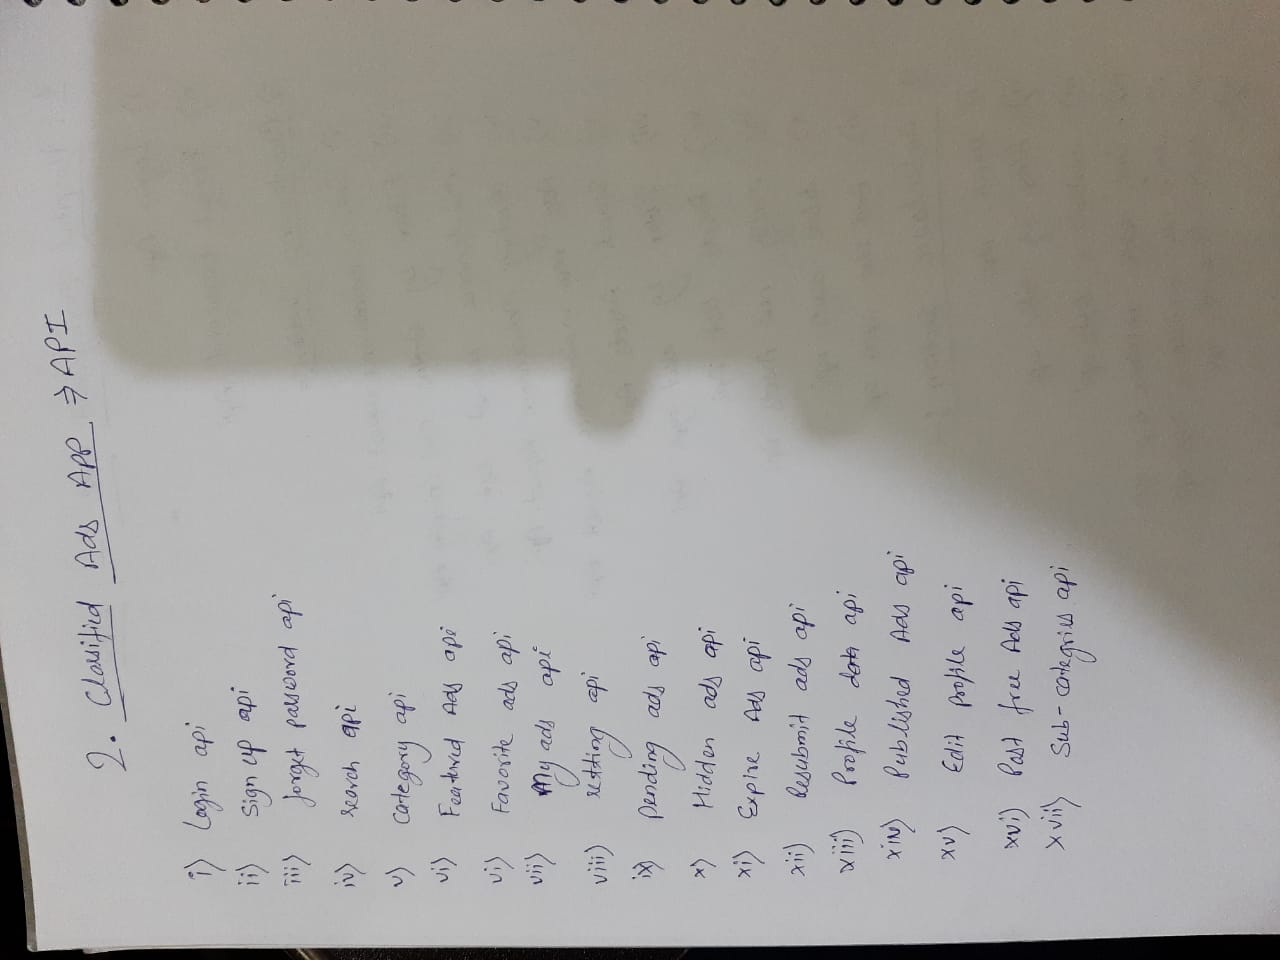 2. Classified Ads APP ⇒ API
i) Login api
ii) Sign up api
iii) forget password api
iv) search api
v) Category api
vi) Featured Ads api
vi) Favorite ads api
vii) My ads api
viii) setting api
ix) pending ads api
x) Hidden ads api
xi) Expire Ads api
xii) Resubmit ads api
xiii) Profile data api
xiv) Published Ads api
xv) Edit profile api
xvi) Post free Ads api
xvii) Sub-categries api